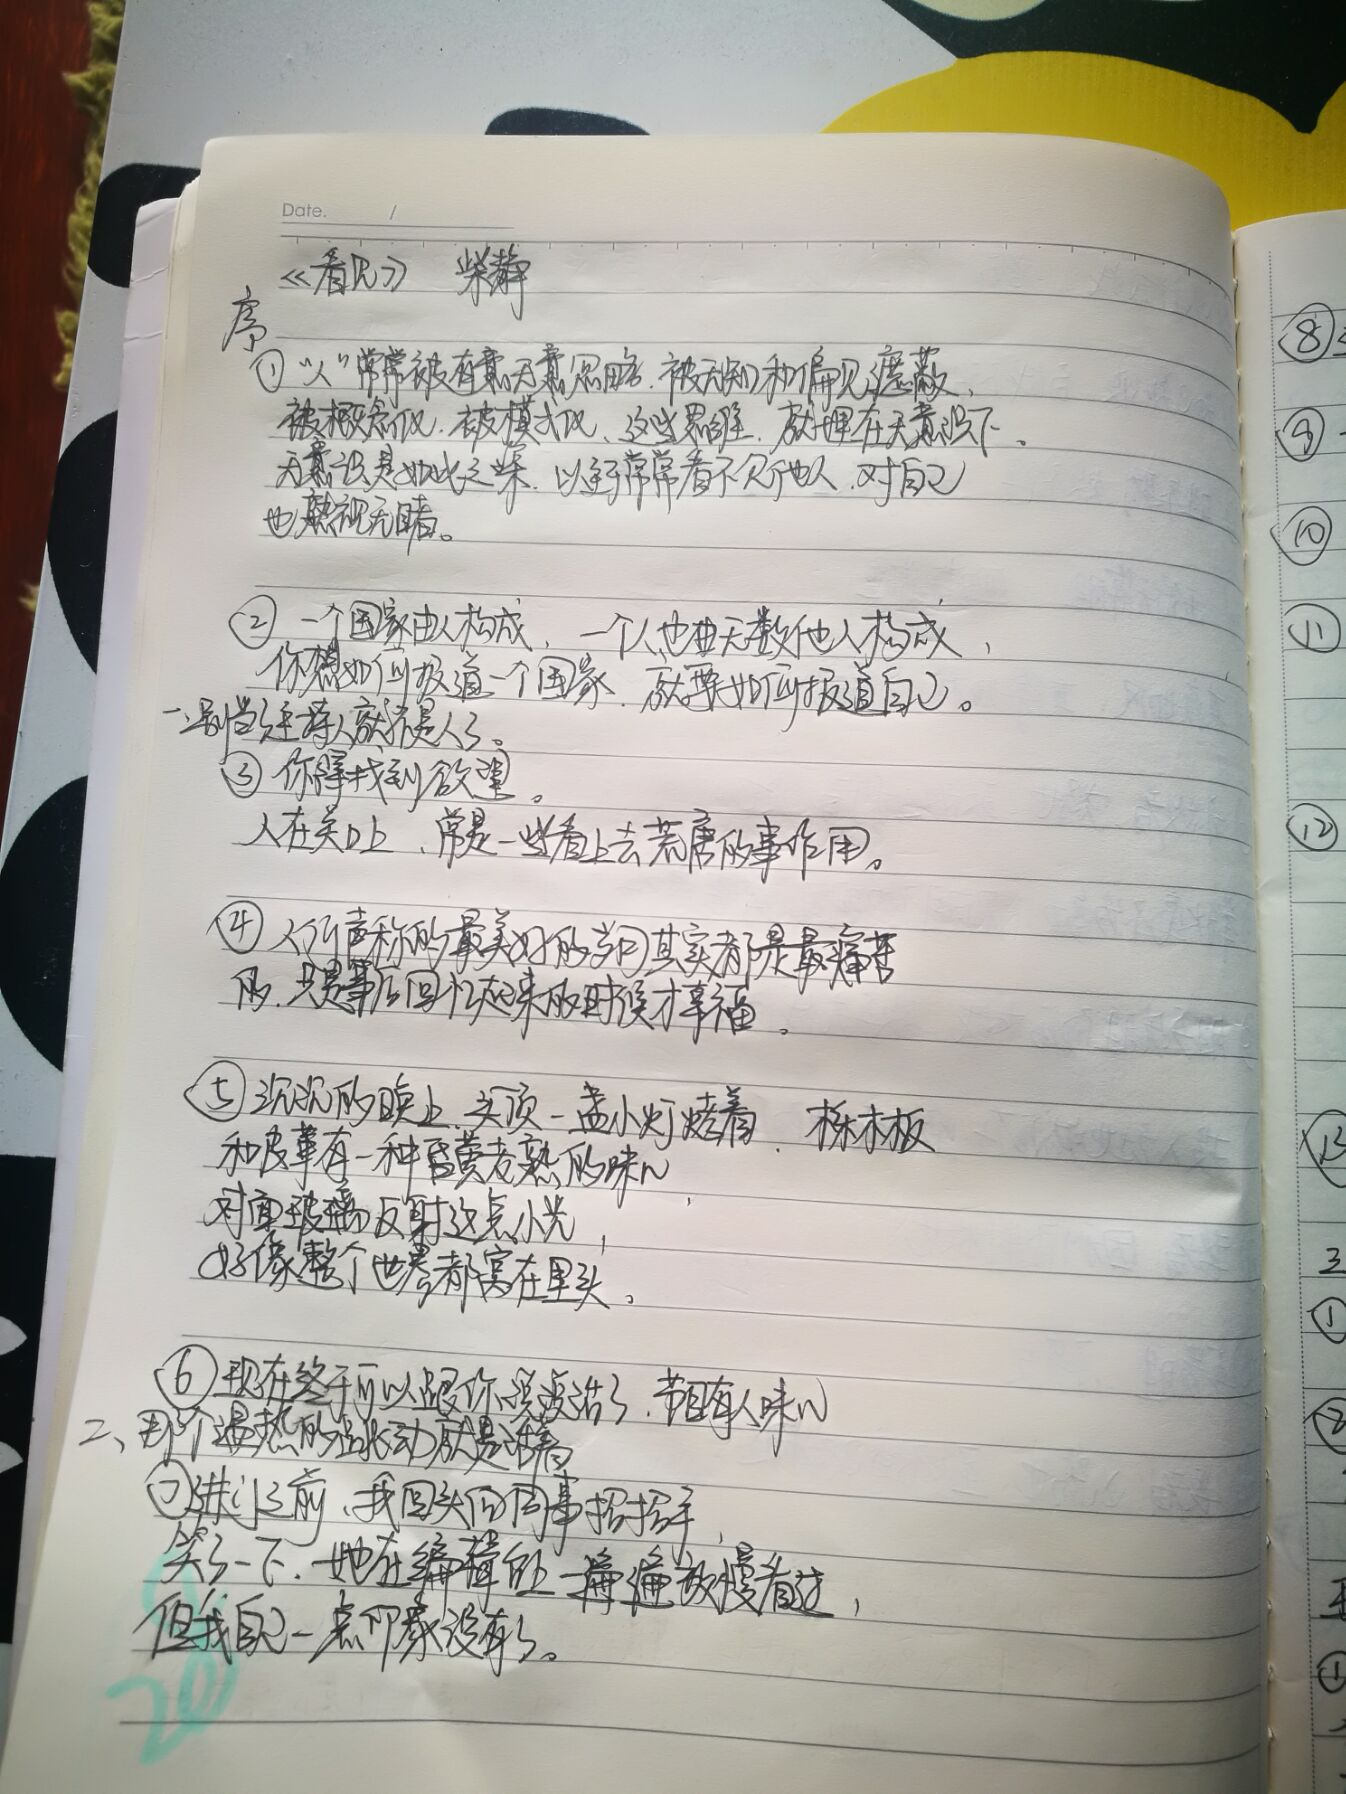 Date. /
《看见》 柴静
序
① "人"常常被有意无意忽略.被无知和偏见遮蔽,
被概念化.被模式化、这些思维.就埋在无意识下。
无意识是如此之深.以至于常常看不见他人.对自己
也熟视无睹。
② 一个国家由人构成,一个人也由无数他人构成,
你想如何报道一个国家.就要如何报道自己。
一、别当了主持人就不是人了。
③ 你得找到欲望。
人在关口上,常是一些看上去荒唐的事作用。
④ 人们声称的最美好的岁月其实都是最痛苦
的.只是事后回忆起来的时候才幸福。
⑤ 沉沉的晚上.头顶一盏小灯烤着.栎木板
和皮革有一种昏黄老熟的味儿,
对面玻璃反射这点小光,
好像整个世界都窝在里头。
⑥ 现在终于可以跟你说点话了.节目有人味儿
二、那个温热的跳动就是活着
⑦ 进门之前,我回头向同事招招手,
笑了一下.她在编辑的 一遍遍放慢看过,
但我自己一点印象没有了。
⑧
⑨
⑩
⑪
⑫
⑬
三
①
②
①